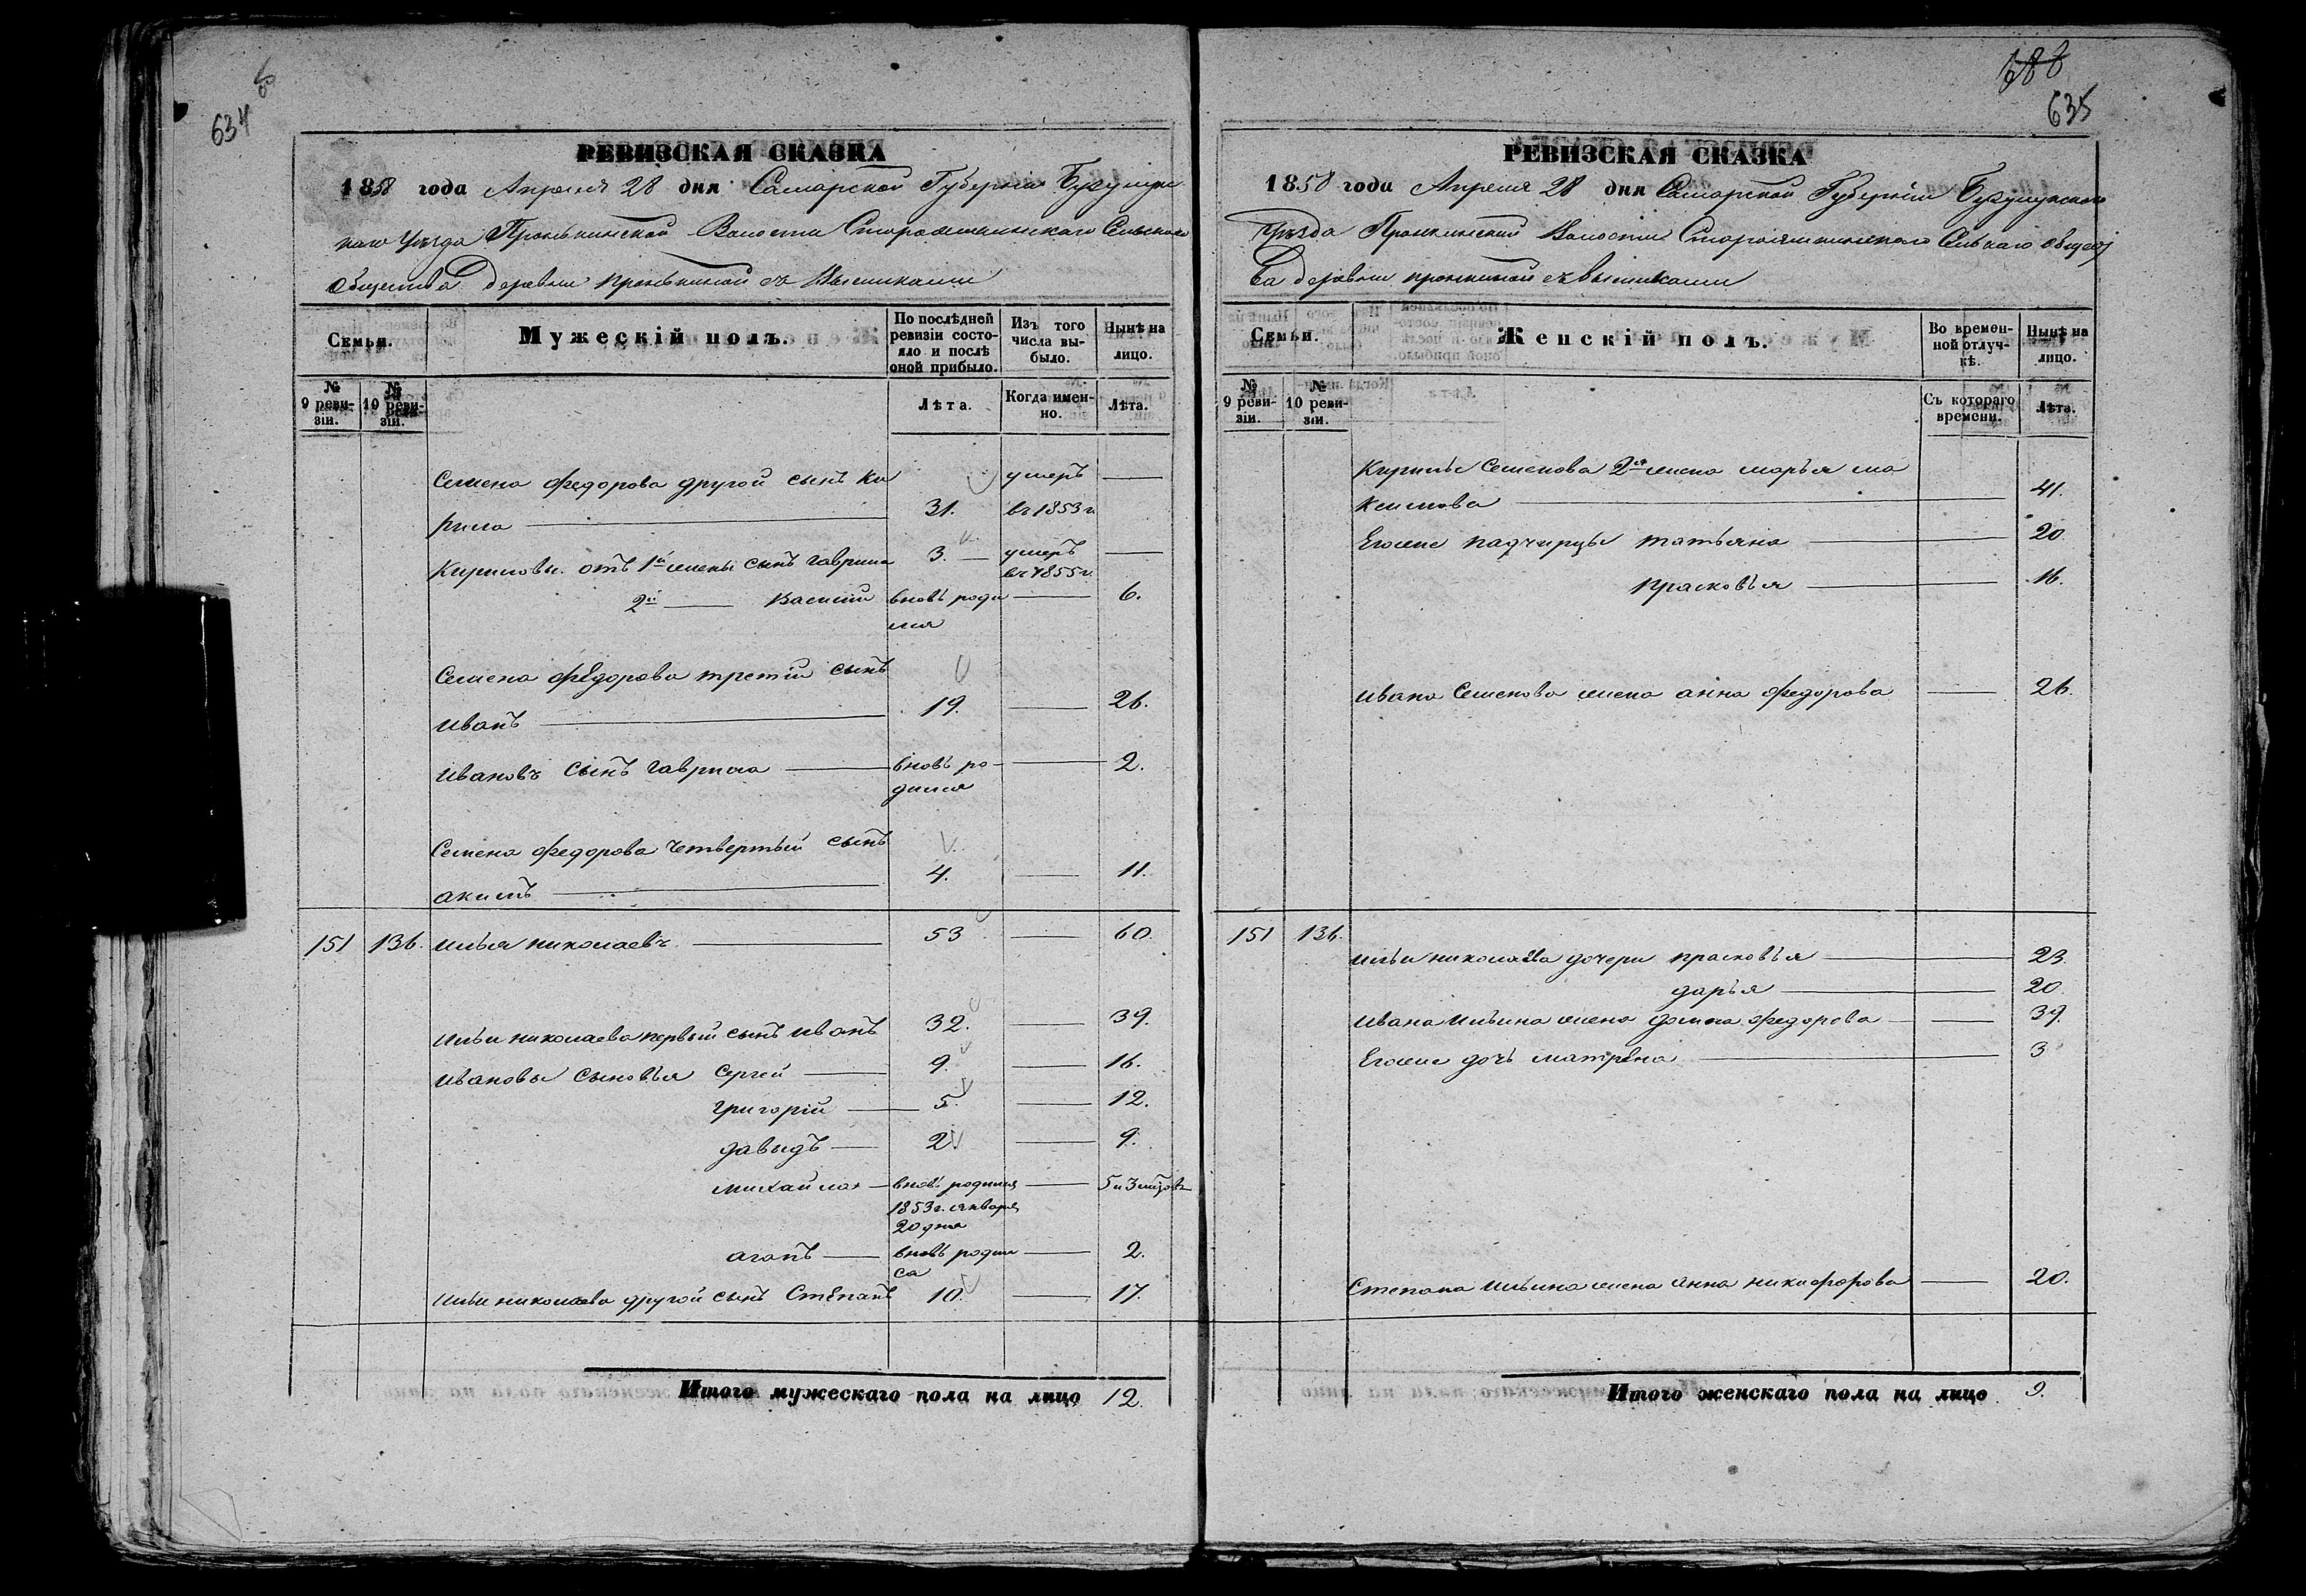 634
РЕВИЗСКАЯ СКАЗКА
1858 года Апреля 28 дня Самарской Губернiи Бузулук
скаго Уезда Пронькинской Волости Староякшинскаго Сельскаго
Общества Деревни Пронькиной съ Выселками
Семьи.
Мужескiй полъ.
По послѣдней ревизiи состояло и послѣ оной прибыло.
Изъ того числа выбыло.
Нынѣ на лицо.
№ 9 ревизiи.
№ 10 ревизiи.
Лѣта.
Когда именно.
Лѣта.
Семена федорова другой сынъ Ки
рила 31. умеръ въ 1853 г.
Кириловы отъ 1й жены сынъ гаврила 3. умеръ въ 1855 г.
2й Василий вновь роди
лся 6.
Семена федорова третiй сынъ
иванъ 19. 26.
ивановъ сынъ гаврила вновь ро-
дился 2.
Семена федорова четвертый сынъ
акимъ 4. 11.
151 136. илья николаевъ 53 60.
ильи николаева первый сынъ иванъ 32. 39.
ивановы сыновья сергей 9. 16.
григорiй 5. 12.
давыдъ 2 9.
михайла вновь родился 5 и 3 мѣсяц
1853 г. января
20 дня
агапъ вновь родил
ся 2.
ильи николаева другой сынъ Степанъ 10. 17.
Итого мужескаго пола на лицо 12.
688
635
РЕВИЗСКАЯ СКАЗКА
1858 года Апреля 28 дня Самарской Губернiи Бузулукскаго
Уезда Пронькинской Волости Староякшинскаго Сельскаго общест
ва деревни пронькиной съ выселками
Семьи.
Женскiй полъ.
Во временной отлучкѣ.
Нынѣ на лицо.
№ 9 ревизiи.
№ 10 ревизiи.
Съ котораго времени.
Лѣта.
Кирилы Семенова 2я жена марья ма
ксимова 41.
Егоже падчирцы татьяна 20
прасковья 16.
ивана Семенова жена анна федорова 26.
151 136.
ильи николаева дочери прасковья 23.
дарья 20
ивана ильина жена домна федорова 39.
Егоже дочь матрена 3
Степана ильина жена анна никифорова 20.
Итого женскаго пола на лицо 9.